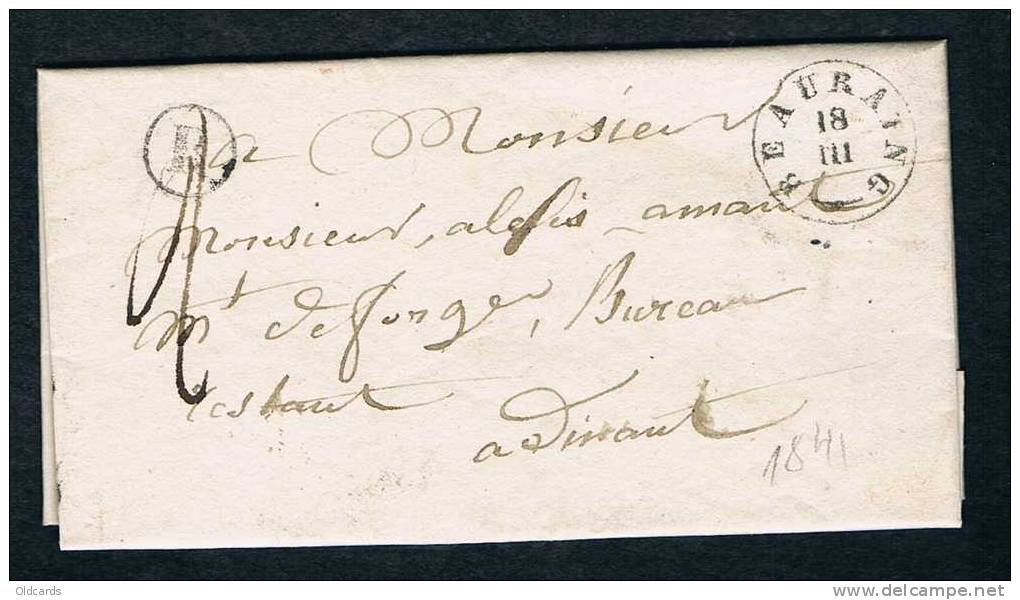 BEAURAING
18
III
a Monsieur
Monsieur, alexis amant
Mt de forges, Bureau
restant
a Dinant
1841
Oldcards
www.delcampe.net